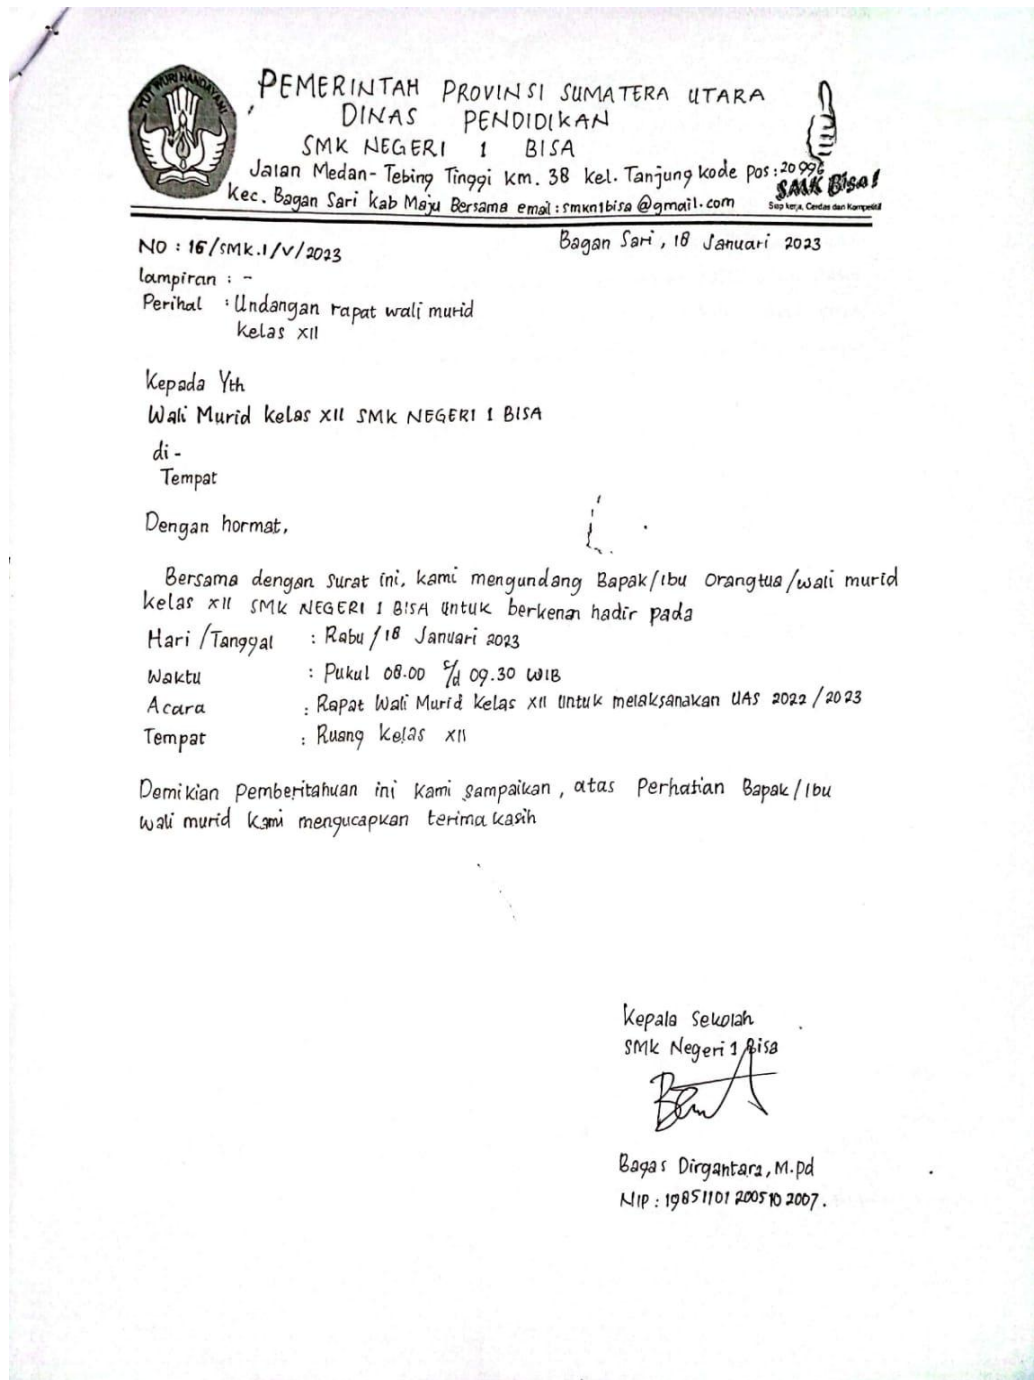 TUT WURI HANDAYANI
PEMERINTAH PROVINSI SUMATERA UTARA
DINAS PENDIDIKAN
SMK NEGERI 1 BISA
Jalan Medan - Tebing Tinggi Km. 38 Kel. Tanjung kode Pos : 20996
Kec. Bagan Sari Kab Maju Bersama email : smkn1bisa@gmail.com
SMK Bisa!
Siap kerja, Cerdas dan Kompetitif
Bagan Sari, 18 Januari 2023
NO : 15/SMK.1/V/2023
Lampiran : -
Perihal : Undangan rapat wali murid
kelas XII
Kepada Yth
Wali Murid kelas XII SMK NEGERI 1 BISA
di -
Tempat
Dengan hormat,
Bersama dengan surat ini, kami mengundang Bapak/Ibu Orangtua/wali murid
kelas XII SMK NEGERI 1 BISA untuk berkenan hadir pada
Hari / Tanggal : Rabu / 18 Januari 2023
Waktu : Pukul 08.00 s/d 09.30 WIB
Acara : Rapat Wali Murid Kelas XII Untuk melaksanakan UAS 2022/2023
Tempat : Ruang Kelas XII
Demikian Pemberitahuan ini Kami sampaikan, atas Perhatian Bapak/Ibu
wali murid Kami mengucapkan terima kasih
Kepala Sekolah
SMK Negeri 1 Bisa
Bagas Dirgantara, M.pd
NIP : 19851101 200510 2007.